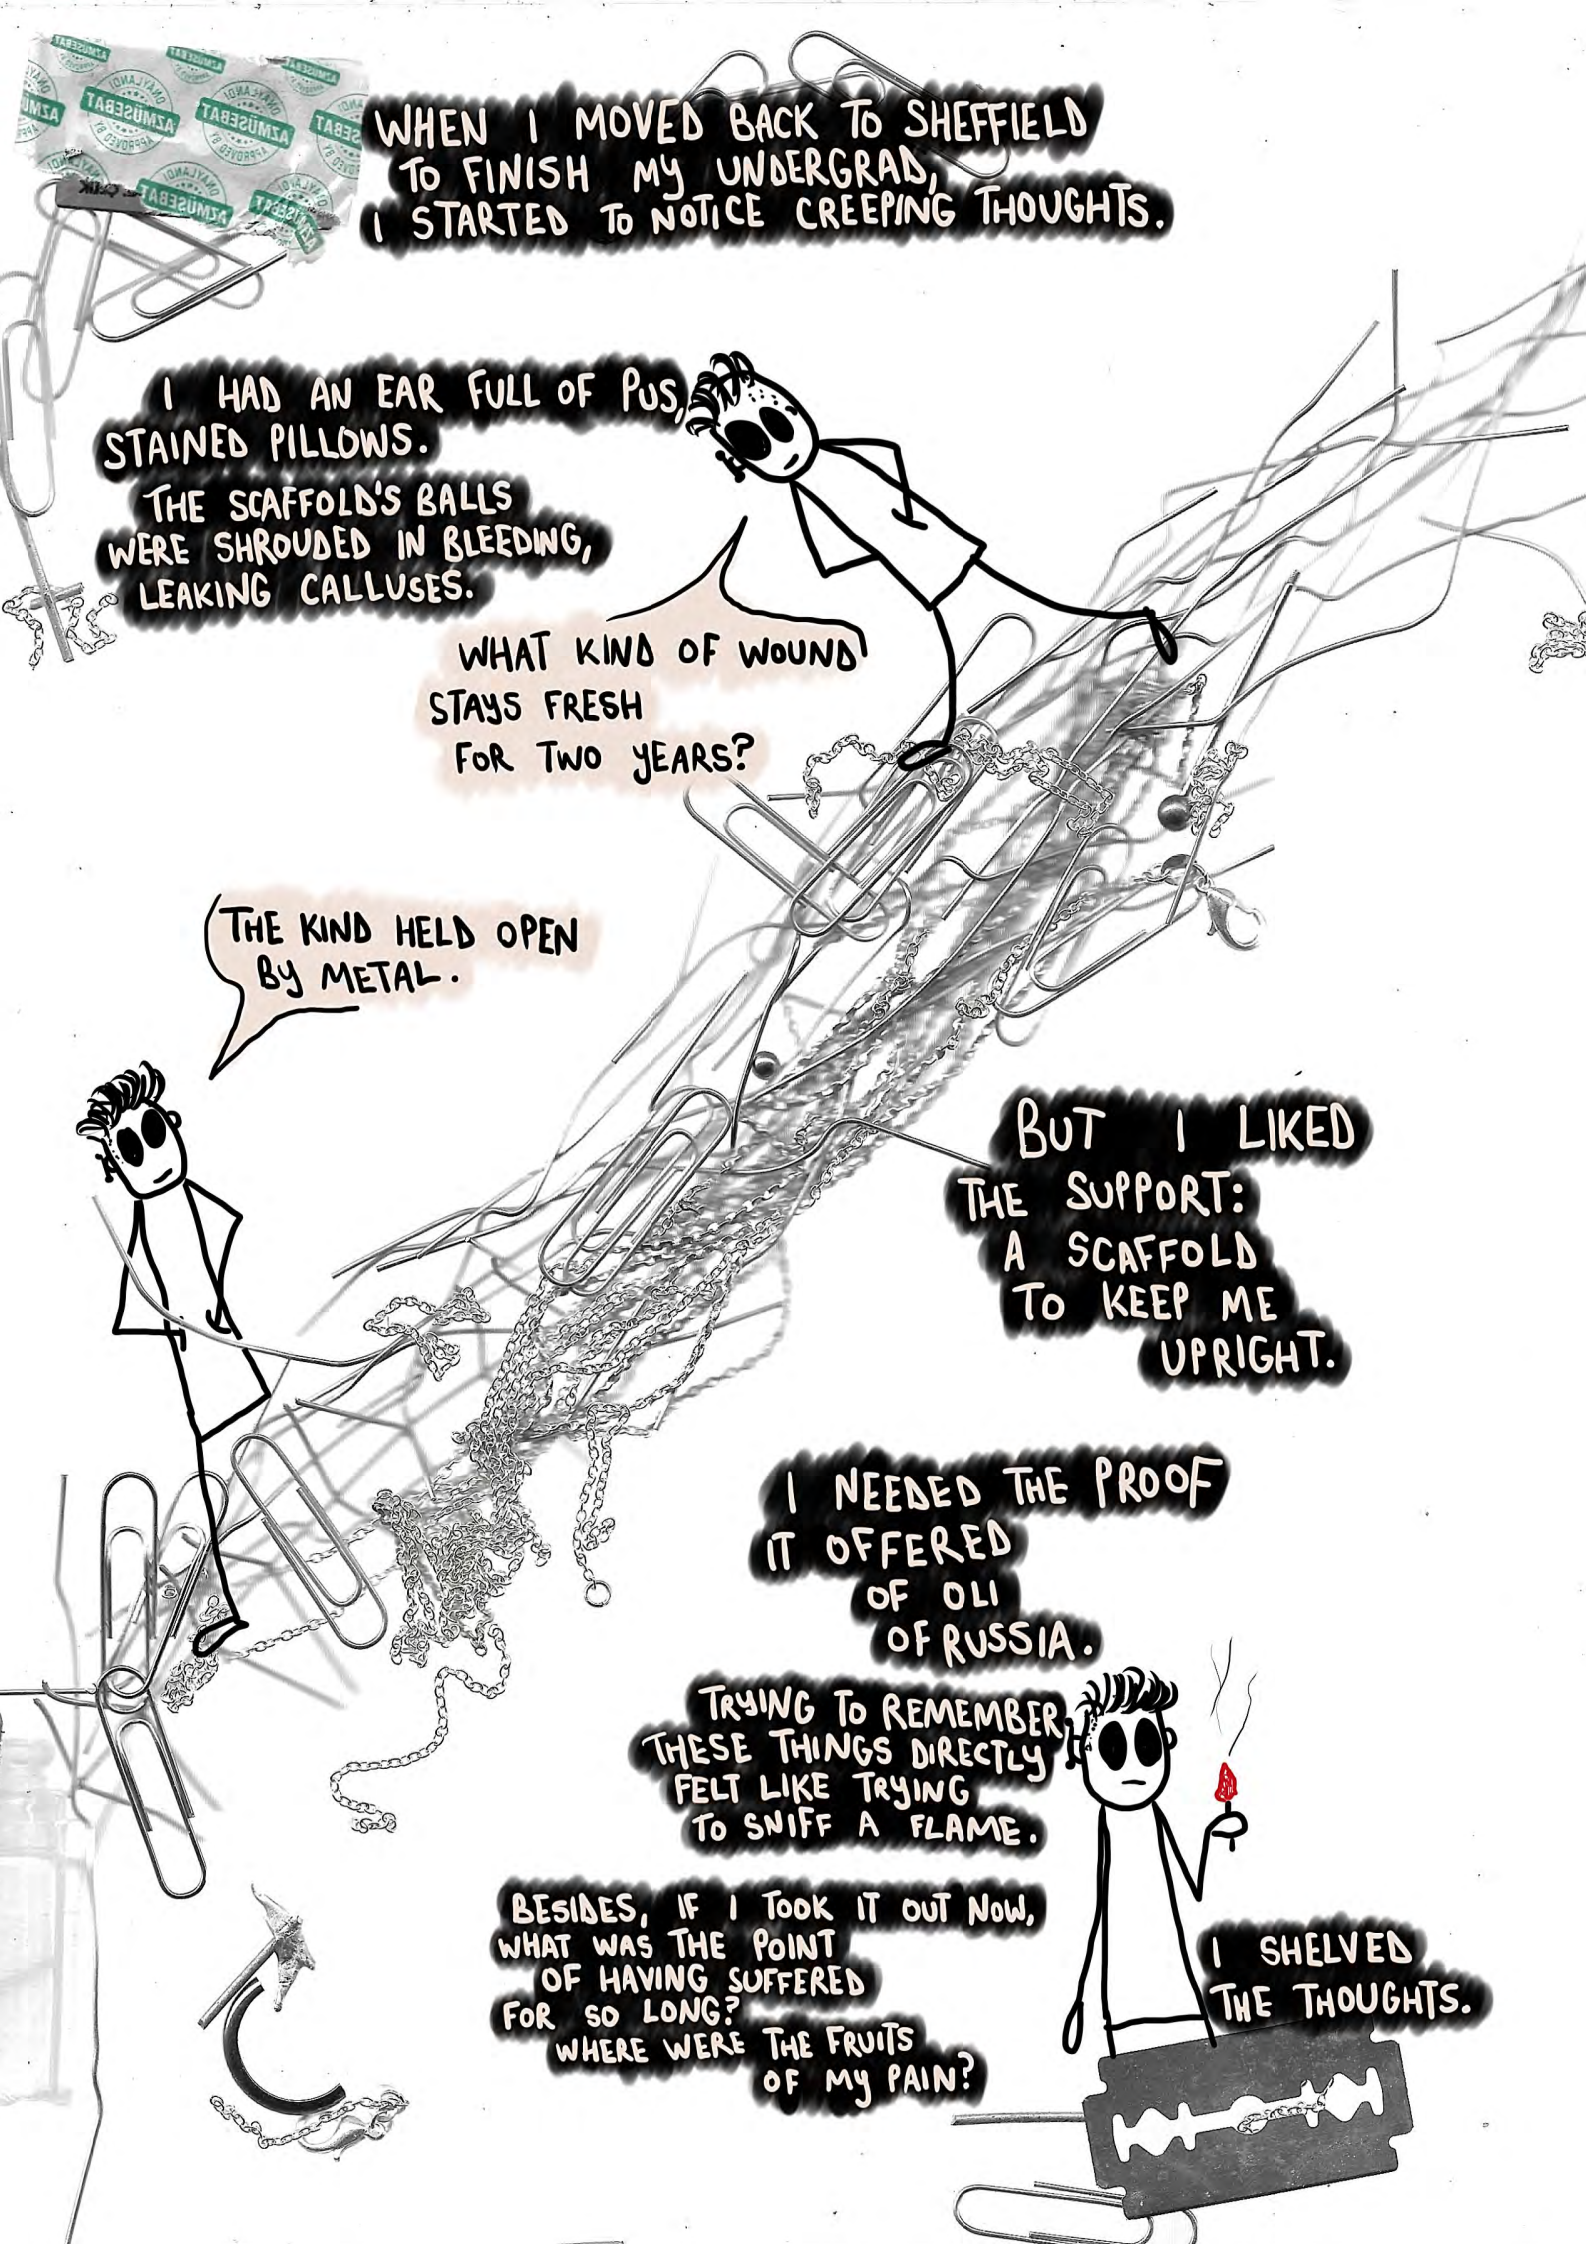 WHEN I MOVED BACK TO SHEFFIELD
TO FINISH MY UNDERGRAD,
I STARTED TO NOTICE CREEPING THOUGHTS.
AZMÜSEBAT
AZMÜSEBAT
AZMÜSEBAT
AZMÜSEBAT
APPROVED BY
APPROVED BY
I HAD AN EAR FULL OF PUS,
STAINED PILLOWS.
THE SCAFFOLD'S BALLS
WERE SHROUDED IN BLEEDING,
LEAKING CALLUSES.
WHAT KIND OF WOUND
STAYS FRESH
FOR TWO YEARS?
THE KIND HELD OPEN
BY METAL.
BUT I LIKED
THE SUPPORT:
A SCAFFOLD
TO KEEP ME
UPRIGHT.
I NEEDED THE PROOF
IT OFFERED
OF OLI
OF RUSSIA.
TRYING TO REMEMBER
THESE THINGS DIRECTLY
FELT LIKE TRYING
TO SNIFF A FLAME.
BESIDES, IF I TOOK IT OUT NOW,
WHAT WAS THE POINT
OF HAVING SUFFERED
FOR SO LONG?
WHERE WERE THE FRUITS
OF MY PAIN?
I SHELVED
THE THOUGHTS.